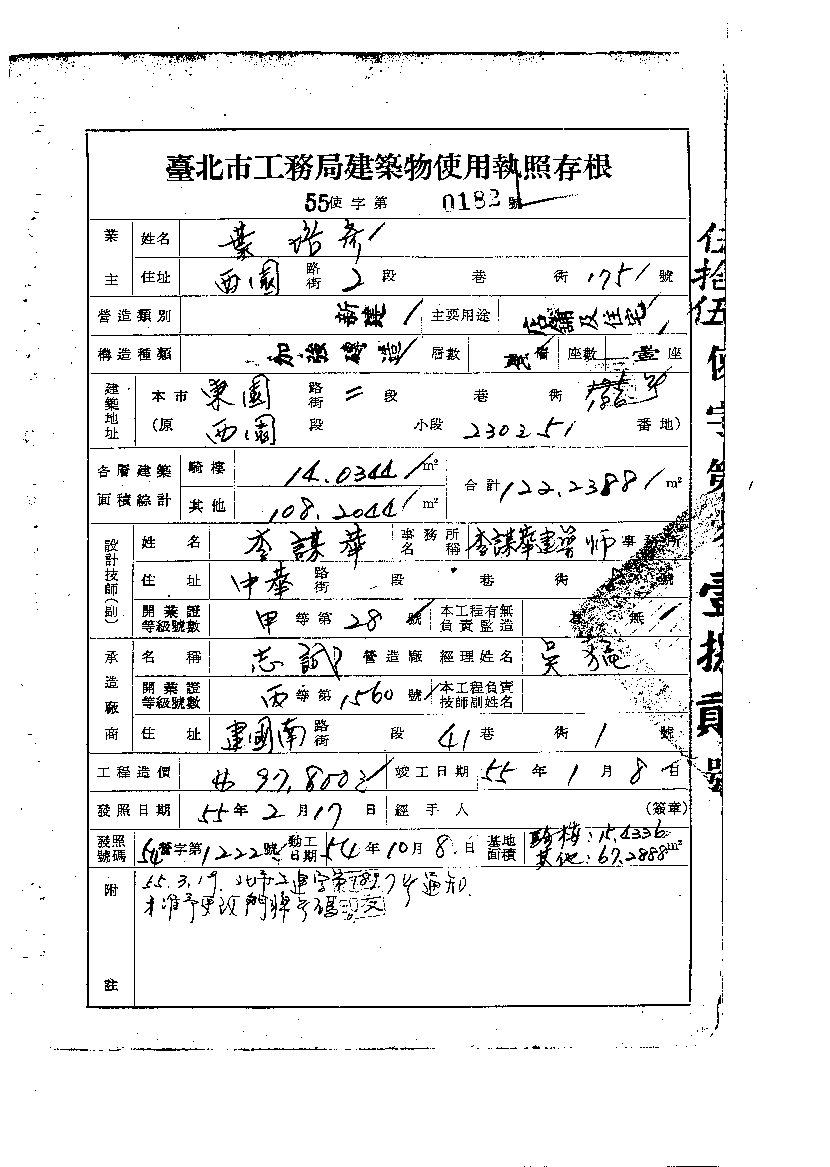 臺北市工務局建築物使用執照存根
55使字第 0182 號
業主 姓名 葉
住址 西園 路街 2 段 巷 衖 175 號
營造類別 新建 主要用途 店舖及住宅
構造種類 加強磚造 層數 貳 座數 壹 座
建築地址 本市 東園 路街 二 段 巷 衖
(原 西園 段 小段 230251 番地)
各層建築面積綜計 騎樓 14.0344 m² 合計 122.2388 m²
其他 108.2044 m²
設計技師(則) 姓名 李謀華 事務所名稱 李謀華建築師事務所
住址 中華 路街 段 巷 衖 號
開業證等級號數 甲 等第 28 號 本工程有無負責監造 無
承造廠商 名稱 志誠 營造廠 經理姓名 吳猛
開業證等級號數 丙 等第 1560 號 本工程負責技師副姓名
住址 建國南 路街 段 41 巷 衖 1 號
工程造價 97,800 竣工日期 55 年 1 月 8 日
發照日期 55 年 2 月 17 日 經手人 (簽章)
發照號碼 54 營字第 1222 號 動工日期 54 年 10 月 8 日 基地面積 騎樓:15.4336 其他:67.2888 m²
附註 55.3.19. 北市工建字第 號通知
准予更改門牌號碼
伍拾伍使字第 壹捌貳號